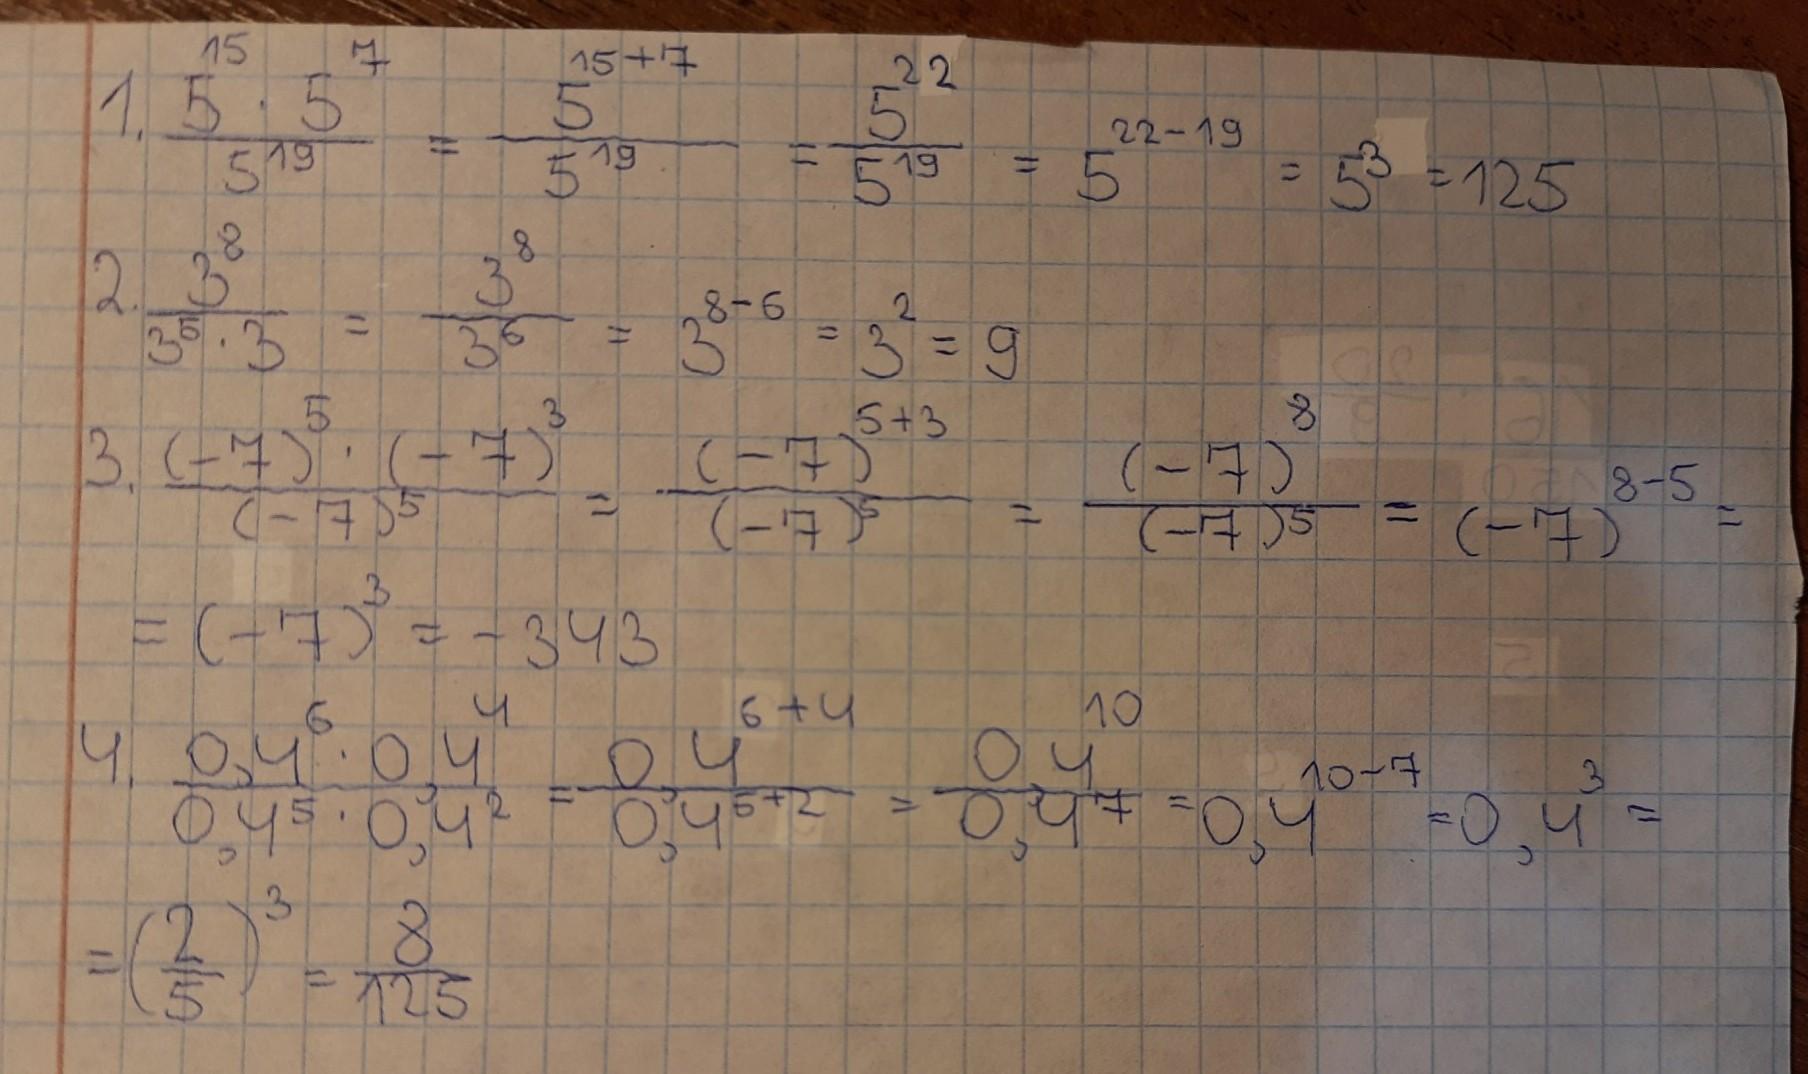 1. \frac{5^{15} · 5^7}{5^{19}} = \frac{5^{15+7}}{5^{19}} = \frac{5^{22}}{5^{19}} = 5^{22-19} = 5^3 = 125
2. \frac{3^8}{3^5 · 3} = \frac{3^8}{3^6} = 3^{8-6} = 3^2 = 9
3. \frac{(-7)^5 · (-7)^3}{(-7)^5} = \frac{(-7)^{5+3}}{(-7)^5} = \frac{(-7)^8}{(-7)^5} = (-7)^{8-5} =
= (-7)^3 = -343
4. \frac{0,4^6 · 0,4^4}{0,4^5 · 0,4^2} = \frac{0,4^{6+4}}{0,4^{5+2}} = \frac{0,4^{10}}{0,4^7} = 0,4^{10-7} = 0,4^3 =
= (\frac{2}{5})^3 = \frac{8}{125}